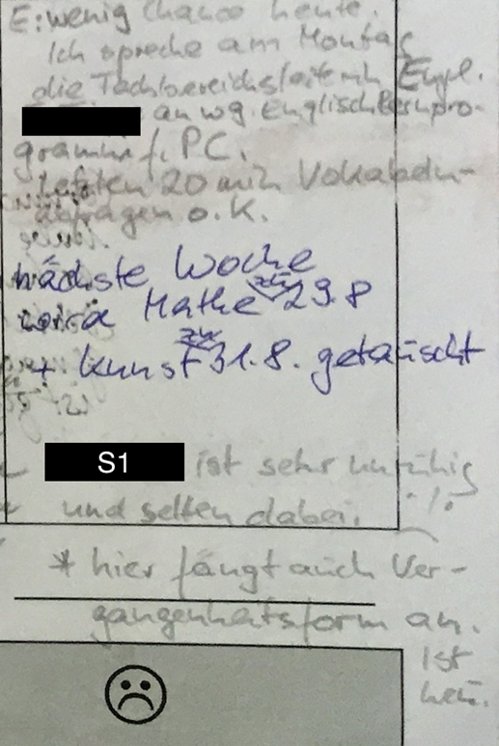 E: wenig Chance heute.
Ich spreche am Montag
die Fachbereichsleiterin Engl.
an wg. Englischlernpro-
gramm f. PC.
letzten 20 min Vokabeln-
abfragen o.K.
nächste Woche
wird Mathe 29.8
+ Kunst 31.8. getauscht
S1 ist sehr unruhig
und selten dabei.
* hier fängt auch Ver-
gangenheitsform an.
Ist
neu.